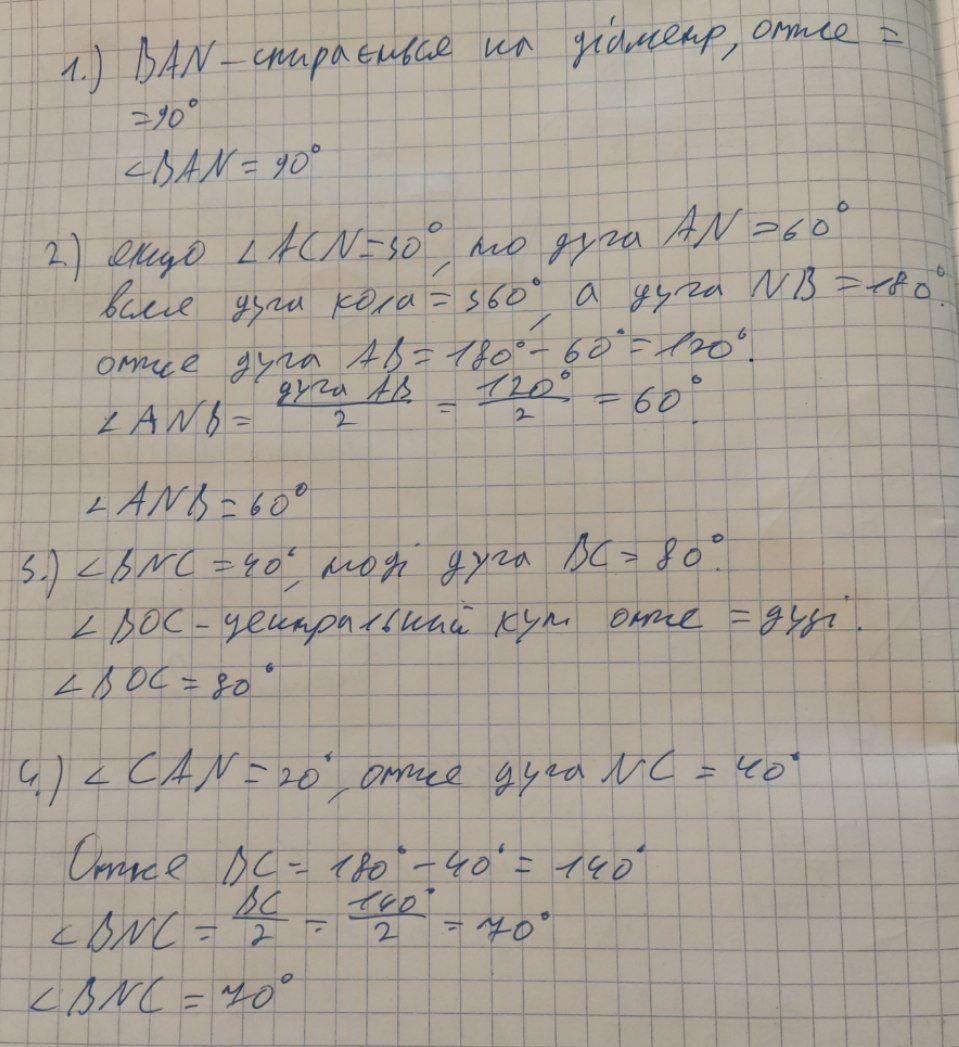 1.) BAN – спирається на діаметр, отже =
= 90°
∠BAN = 90°
2.) якщо ∠ACN = 30°, то дуга AN = 60°
вся дуга кола = 360°, а дуга NB = 180°.
отже дуга AB = 180° – 60° = 120°.
∠ANB = дуга AB / 2 = 120° / 2 = 60°.
∠ANB = 60°
3.) ∠BNC = 40°, тоді дуга BC = 80°.
∠BOC – центральний кут отже = дузі.
∠BOC = 80°
4.) ∠CAN = 20°, отже дуга NC = 40°
Отже BC = 180° – 40° = 140°
∠BNC = BC / 2 = 140° / 2 = 70°
∠BNC = 70°